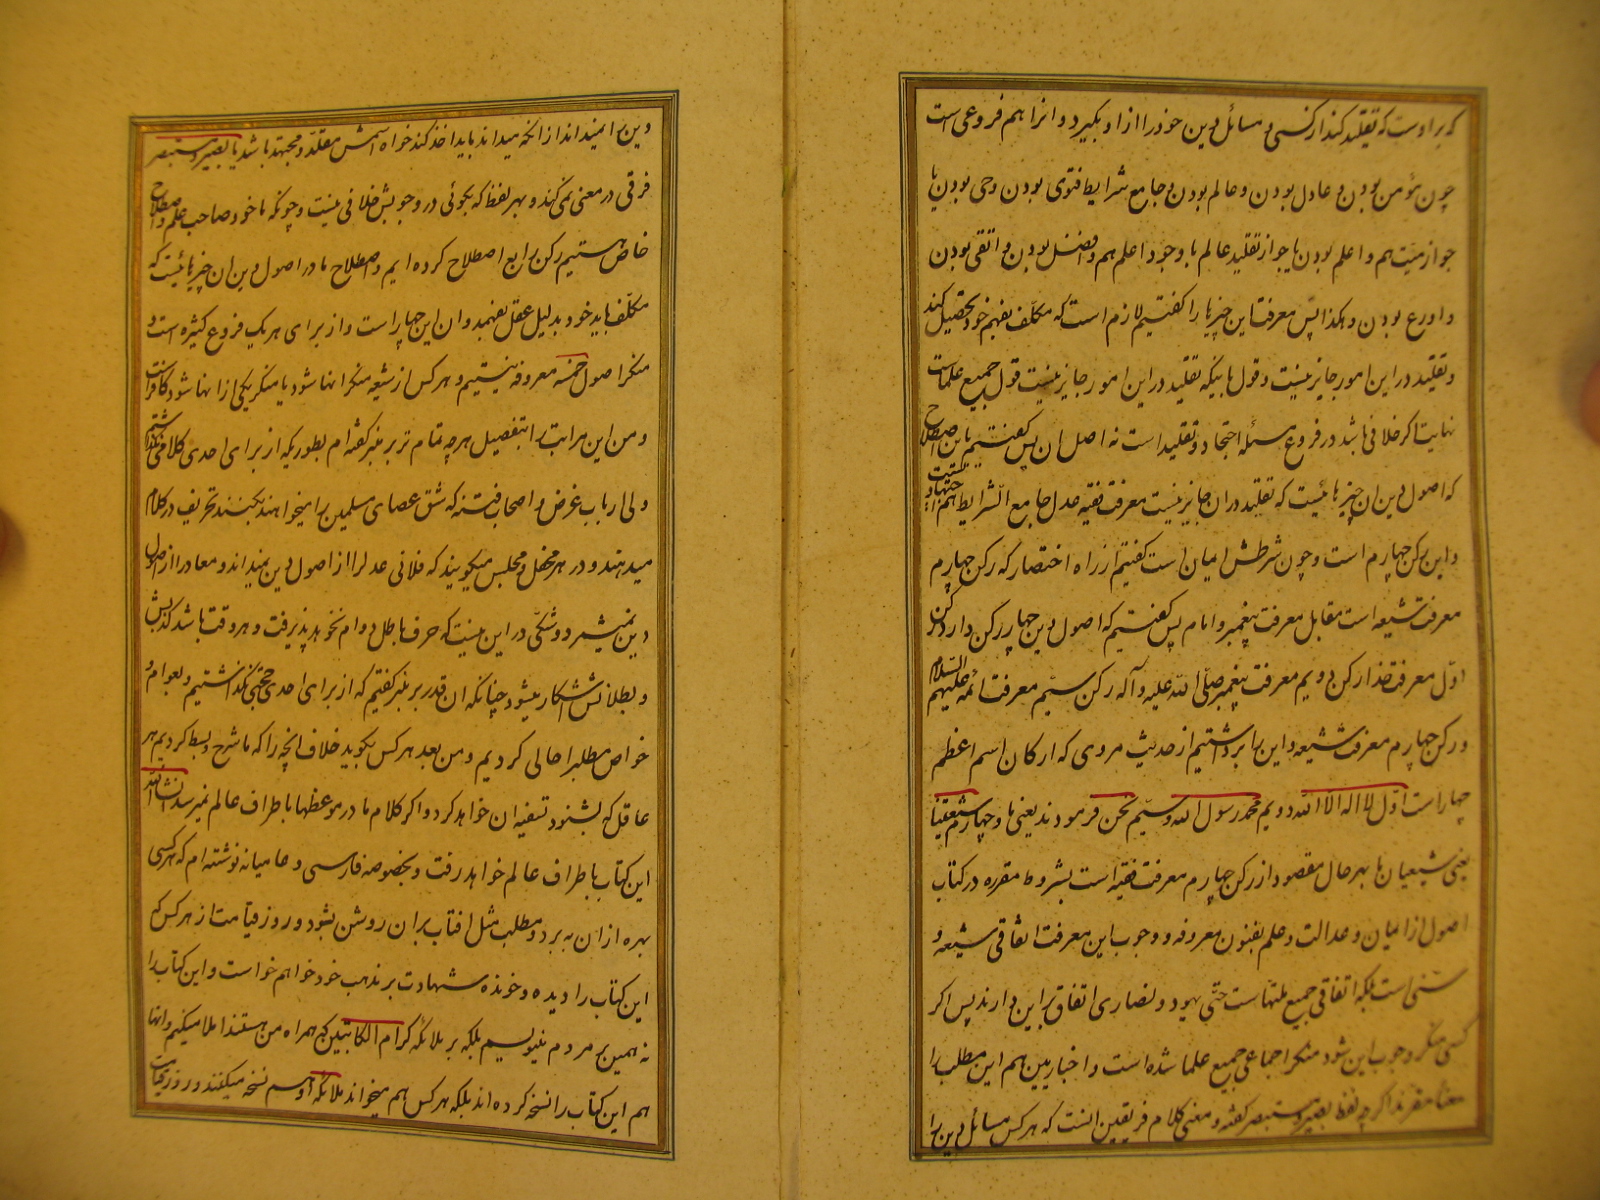 که بر اوست که تقلید کند از کسی و مسائل دین خود را از او بگیرد و انرا هم فروعی است
چون مؤمن بودن و عادل بودن و عالم بودن و جامع شرایط فتوی بودن و حی بودن یا
جواز میت هم و اعلم بودن یا جواز تقلید عالم با وجود اعلم هم و افضل بودن و اتقی بودن
و اورع بودن و هکذا پس معرفت این چیزها را گفتیم لازم است که مکلف بفهم خود تحصیل کند
و تقلید در این امور جایز نیست و قول باینکه تقلید در این امور جایز نیست قول جمیع علماست
نهایت اگر خلافی باشد در فروع مسئله اجتهاد و تقلید است نه اصل ان پس گفتیم باین اصطلاح
که اصول دین ان چیزهائیست که تقلید در ان جایز نیست معرفت فقیه عدل جامع الشرایط هم
و این رکن چهارم است و چون شرطش ایمان است گفتیم از راه اختصار که رکن چهارم
معرفت شیعه است مقابل معرفت پیغمبر و امام پس گفتیم که اصول دین چهار رکن دارد رکن
اول معرفت خدا رکن دویم معرفت پیغمبر صلی الله علیه و آله رکن سیم معرفت ائمه علیهم السلام
و رکن چهارم معرفت شیعه و این را برداشتیم از حدیث مروی که ارکان اسم اعظم
چهار است اول لا اله الا الله دویم محمد رسول الله و سیم نحن فرمودند یعنی ما و چهارم شیعتنا
یعنی شیعیان ما بهر حال مقصود از رکن چهارم معرفت فقیه است بشروط مقرره در کتاب
اصول از ایمان و عدالت و علم بفنون معروفه و وجوب این معرفت اتفاقی شیعه و
سنی است بلکه اتفاقی جمیع ملتهاست حتی یهود و نصاری اتفاق بر این دارند پس اگر
کسی منکر وجوب این شود منکر اجماعی جمیع علما شده است و اخباریین هم این مطلب را
معناً مقرند اگر چه لفظ بصیر و مستبصر گفته و معنی کلام فریقین انست که هر کس مسائل دین را
دین را نمیداند از انکه میداند باید اخذ کند خواه اسمش مقلد و مجتهد باشد یا بصیر و مستبصر
فرقی در معنی نمی‌کند و بهر لفظ که بگوئی در وجوبش خلافی نیست و چونکه ما خود صاحب علم و اصطلاح
خاص هستیم رکن رابع اصطلاح کرده ایم و اصطلاح ما در اصول دین ان چیزهائیست که
مکلف باید خود بدلیل عقل بفهمد و ان این چهار است و از برای هر یک فروع کثیره است و
منکر اصول خمسه معروفه نیستیم و هر کس از شیعه منکر انها شود یا منکر یکی از انها شود کافر است
و من این مراتب را بتفصیل هر چه تمام تر بر منبر گفته ام بطوریکه از برای احدی کلامی نگذاشتم
ولی ارباب غرض و اصحاب فتنه که شق عصای مسلمین را میخواهند بکنند تحریف در کلام
میدهند و در هر محفل و مجلس میگویند که فلانی عدل را از اصول دین نمیداند و معاد را از اصول
دین نمیشمرد و شکی در این نیست که حرف باطل دوام نخواهد پذیرفت و هر وقت باشد کذبش
و بطلانش اشکار میشود چنانکه ان قدر بر منبر گفتیم که از برای احدی حجتی نگذاشتیم و بعوام و
خواص مطلب را حالی کردیم و من بعد هر کس بگوید خلاف انچه را که ما شرح و بسط کردیم هر
عاقل که بشنود تسفیه ان خواهد کرد و اگر کلام ما در موعظها باطراف عالم نمیرسد انشاءالله
این کتاب باطراف عالم خواهد رفت و بخصوصه فارسی و عامیانه نوشته ام که هر کسی
بهره از ان ببرد و مطلب مثل افتاب بر ان روشن بشود و روز قیامت از هر کس که
این کتاب را دیده و خوانده شهادت بر مذهب خود خواهم خواست و این کتاب را
نه همین بر مردم مینویسم بلکه بر ملائکه کرام الکاتبین که همراه من هستند املا میکنم و انها
هم این کتاب را نسخه کرده اند بلکه هر کس هم میخواند ملائکه او هم نسخه میکنند و روز قیامت